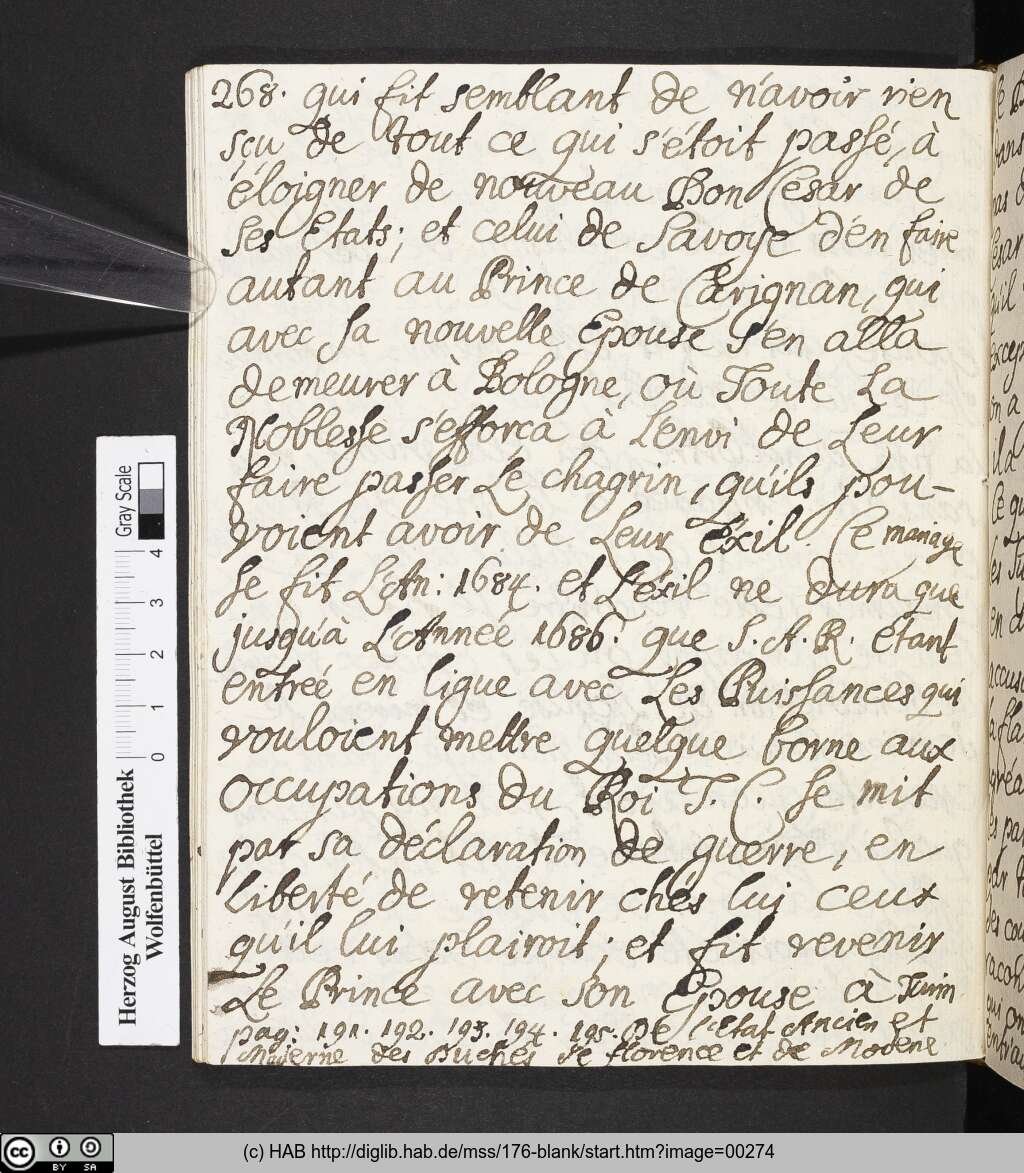 268. qui fit semblant de n'avoir rien
sçu de tout ce qui s'étoit passé, à
éloigner de nouveau Don Cesar de
ses Etats; et celui de Savoye d'en faire
autant au Prince de Carignan, qui
avec sa nouvelle Epouse s'en alla
demeurer à Bologne, où Toute La
Noblesse s'efforça à L'envi de Leur
faire passer Le chagrin, qu'ils pou-
voient avoir de Leur Exil. Ce mariage
se fit L'An: 1684. et L'éxil ne dura que
jusqu'à L'Année 1686. que S. A. R. étant
entrée en ligue avec Les Puissances qui
vouloient mettre quelque borne aux
occupations du Roi T. C. se mit
par sa déclaration de guerre, en
liberté de retenir chés lui ceux
qu'il lui plairoit; et fit revenir
Le Prince avec son Epouse à Turin
pag: 191. 192. 193. 194. 195. De l'Etat Ancien et
Moderne des Duchés de florence et de Modene
Herzog August Bibliothek
Wolfenbüttel
0 1 2 3 4
Gray Scale
(c) HAB http://diglib.hab.de/mss/176-blank/start.htm?image=00274
cc BY SA